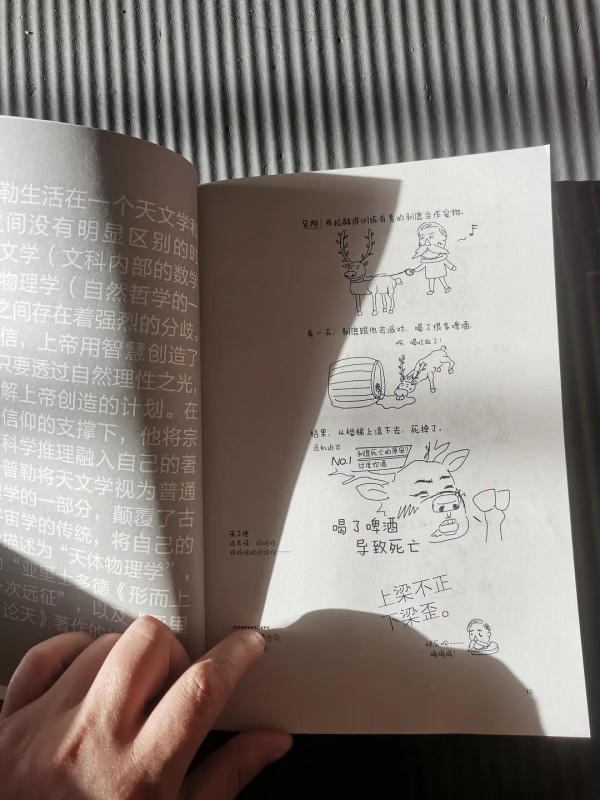 勒生活在一个天文学和
之间没有明显区别的时
文学（文科内部的数学
物理学（自然哲学的一
之间存在着强烈的分歧。
信，上帝用智慧创造了
只要透过自然理性之光，
解上帝创造的计划。在
信仰的支撑下，他将宗
科学推理融入自己的著
普勒将天文学视为普通
学的一部分，颠覆了古
宇宙学的传统，将自己的
描述为“天体物理学”，
“亚里士多德《形而上
一次远征”，以及
论天》著作的
布拉赫将训练有素的驯鹿当作宠物。
有一天，驯鹿跟他去派对，喝了很多啤酒。
啊，喝吐血了！
结果，从楼梯上滚下去，死掉了。
NO.1
驯鹿死亡的原因？
过度饮酒
喝了啤酒
导致死亡
哈哈哈
哈哈哈哈哈哈哈……
上梁不正
下梁歪。
快乐吧……
嗝嗝嗝！
15